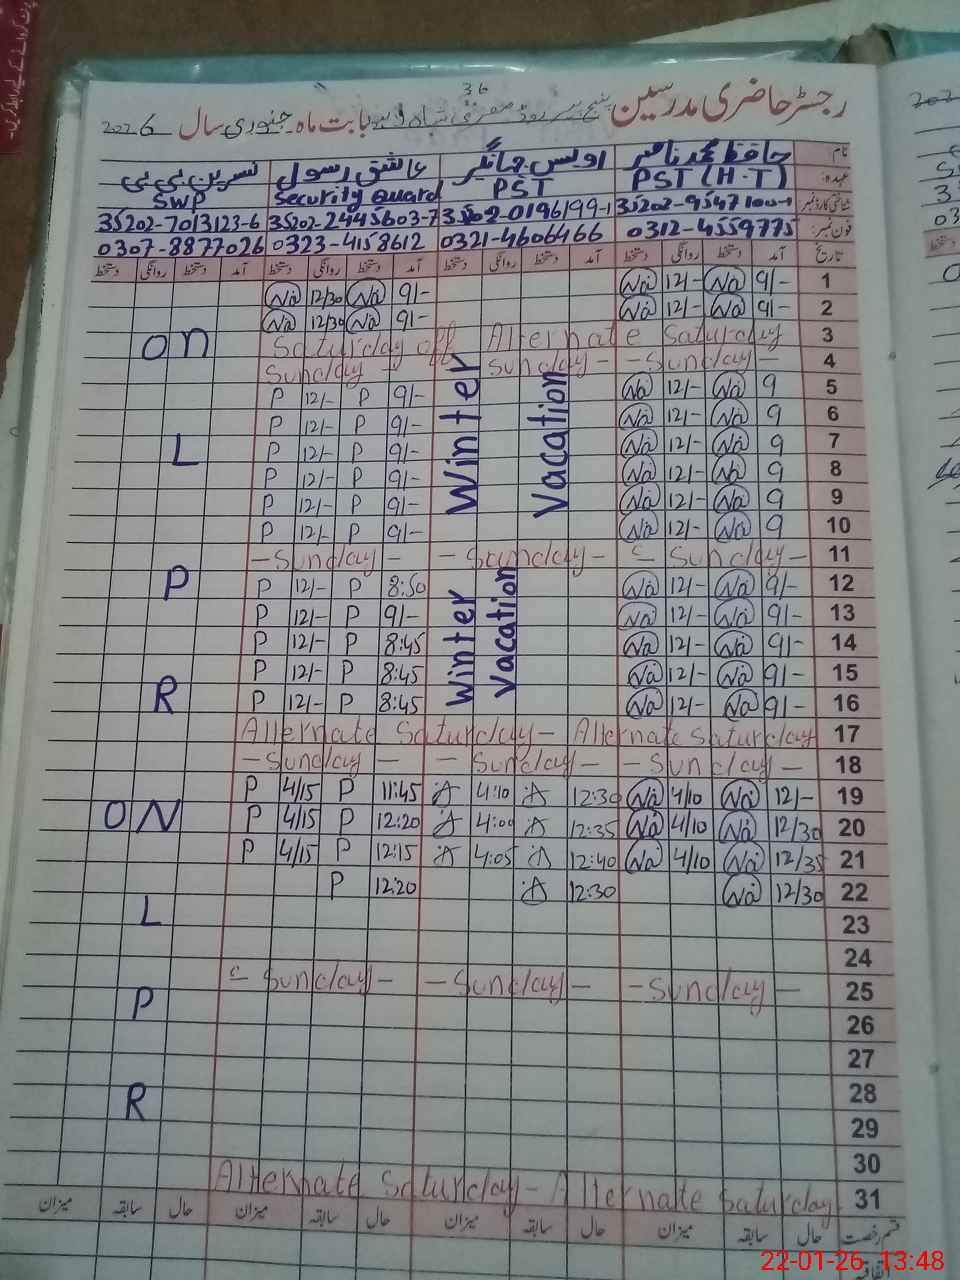 36
رجسٹر حاضری مدرسین بابت ماہ جنوری سال 2026
نام: حافظ محمد ناصر اویس جہانگیر عاشق رسول نسرین بی بی
عہدہ: PST (H.T) PST Security Guard SWP
شناختی کارڈ نمبر 35202-9547100-1 35202-0196199-1 35202-2445603-7 35202-7013123-6
فون نمبر: 0312-4559775 0321-4606466 0323-4158612 0307-8877026
تاریخ آمد دستخط روانگی دستخط آمد دستخط روانگی دستخط آمد دستخط روانگی دستخط آمد دستخط روانگی دستخط
Na 12/30 Na 9/- Na 12/- Na 9/- 1
Na 12/30 Na 9/- Na 12/- Na 9/- 2
On Saturday off Alternate Saturday 3
Sunday - Sunday - - Sunday - 4
P 12/- P 9/- Na 12/- Na 9 5
P 12/- P 9/- Na 12/- Na 9 6
L P 12/- P 9/- Winter Vacation Na 12/- Na 9 7
P 12/- P 9/- Na 12/- Na 9 8
P 12/- P 9/- Na 12/- Na 9 9
P 12/- P 9/- Na 12/- Na 9 10
- Sunday - - Sunday - - Sunday - 11
P P 12/- P 8:50 Na 12/- Na 9/- 12
P 12/- P 9/- Na 12/- Na 9/- 13
P 12/- P 8:45 Winter Vacation Na 12/- Na 9/- 14
P 12/- P 8:45 Na 12/- Na 9/- 15
R P 12/- P 8:45 Na 12/- Na 9/- 16
Alternate Saturday - Alternate Saturday 17
- Sunday - - Sunday - - Sunday - 18
P 4/15 P 11:45 A 4:10 A 12:30 Na 4/10 Na 12/- 19
ON P 4/15 P 12:20 A 4:00 A 12:35 Na 4/10 Na 12/30 20
P 4/15 P 12:15 A 4:05 A 12:40 Na 4/10 Na 12/35 21
P 12:20 A 12:30 Na 12/30 22
L 23
24
P - Sunday - - Sunday - - Sunday - 25
26
27
R 28
29
30
Alternate Saturday - Alternate Saturday 31
قسم رخصت حال سابقہ میزان حال سابقہ میزان حال سابقہ میزان حال سابقہ میزان
اتفاقیہ
22-01-26 13:48